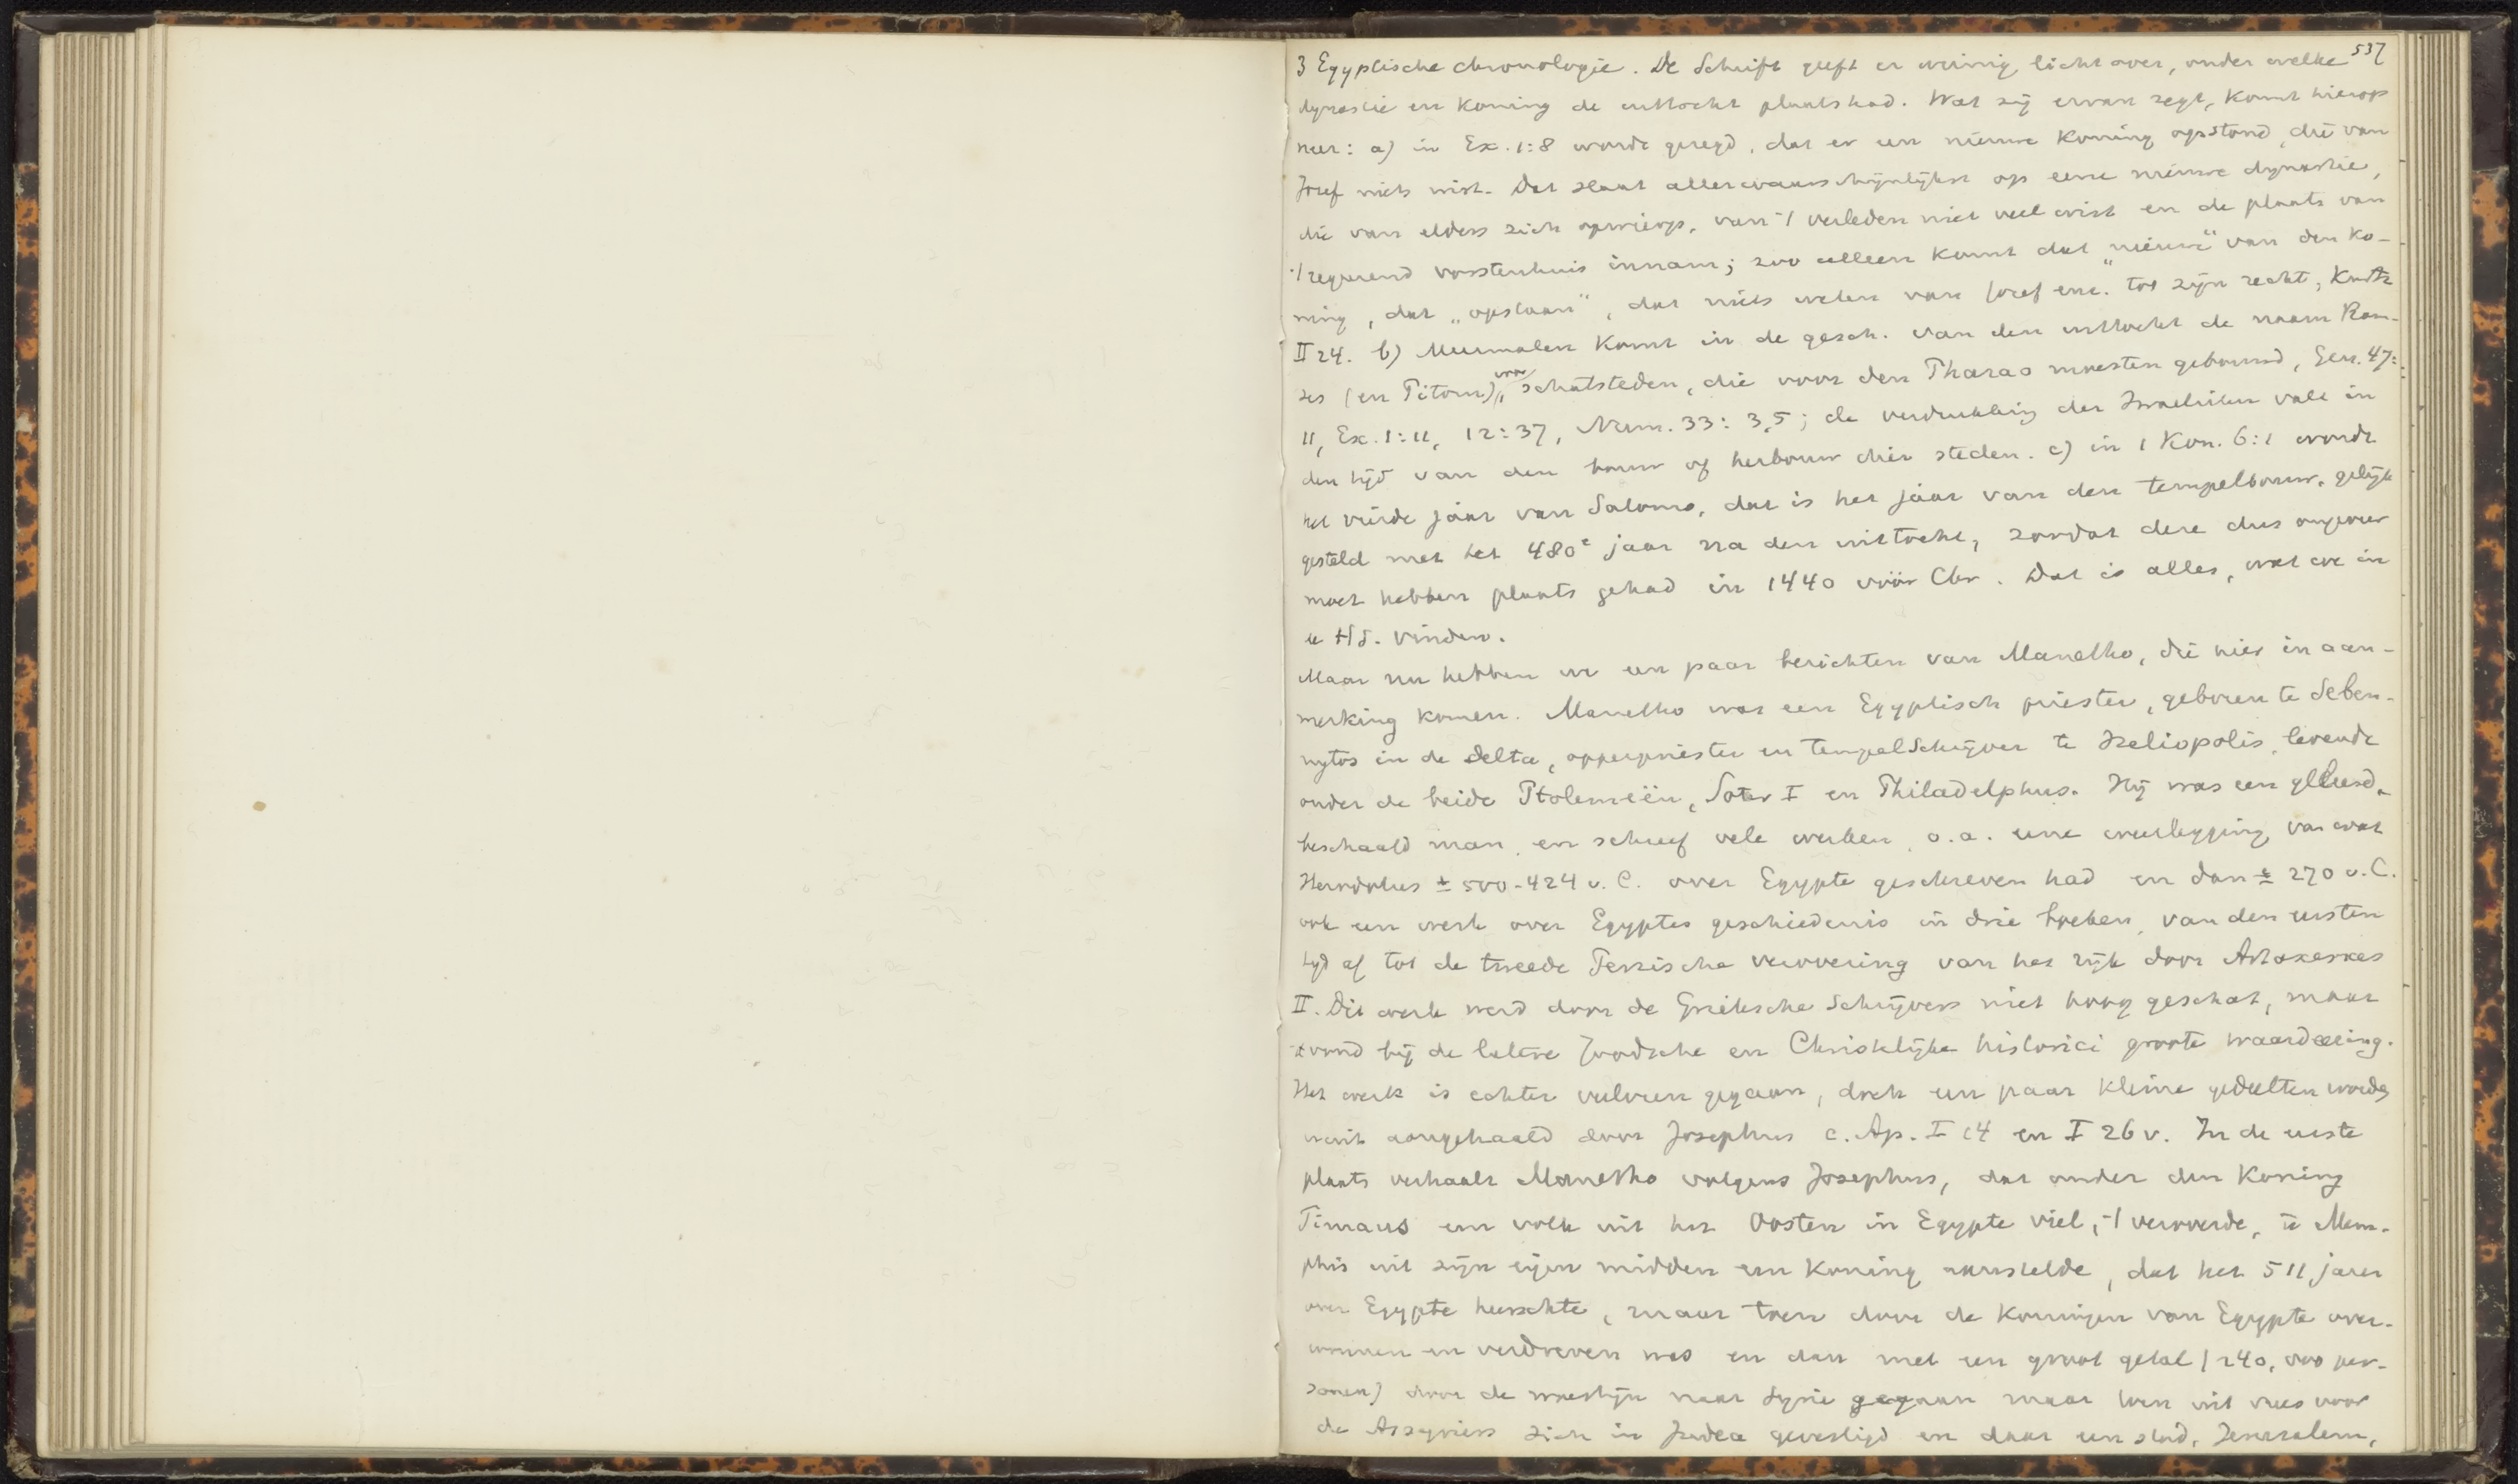 537
3 Egyptische chronologie. De Schrift geeft er weinig licht over, onder welke
dynastie en koning de uittocht plaats had. Wat zij ervan zegt, komt hierop
neer: a) in Ex. 1:8 wordt gezegd, dat er een nieuwe koning opstond, die van
Jozef niets wist. Dat slaat allerwaarschijnlijkst op eene nieuwe dynastie,
die van elders zich opwierp, van 't verleden niet veel wist en de plaats van
't regeerend vorstenhuis innam; zoo alleen komt dat „nieuwe" van den ko-
ning, dat „opstaan", dat niets weten van Jozef enz. tot zijn recht, Kurtz
II 24. b) Meermalen komt in de gesch. van den uittocht de naam Ram-
ses (en Pitom) voor, schatsteden, die voor den Pharao moesten gebouwd, Gen. 47:
11, Ex. 1:11, 12:37, Num. 33:3,5; de verdrukking der Israelieten valt in
den tijd van den bouw of herbouw dier steden. c) in 1 Kon. 6:1 wordt
het vierde jaar van Salomo, dat is het jaar van den tempelbouw, gelijk
gesteld met het 480e jaar na den uittocht, zoodat deze dus ongeveer
moet hebben plaats gehad in 1440 vóór Chr. Dat is alles, wat we in
de HS. vinden.
Maar nu hebben we een paar berichten van Manetho, die hier in aan-
merking komen. Manetho was een Egyptisch priester, geboren te Seben-
nytos in de Delta, opperpriester en tempelschrijver te Heliopolis, levende
onder de beide Ptolemeën, Soter I en Philadelphus. Hij was een geleerd,
beschaafd man, en schreef vele werken, o.a. eene weerlegging van wat
Herodotus ± 500-424 v. C. over Egypte geschreven had en dan ± 270 v. C.
ook een werk over Egyptes geschiedenis in drie boeken, van den eersten
tijd af tot de tweede Perzische verovering van het rijk door Artaxerxes
II. Dit werk werd door de Grieksche schrijvers niet hoog geschat, maar
vond bij de latere Joodsche en Christelijke historici groote waardeering.
Het werk is echter verloren gegaan, doch een paar kleine gedeelten worden
eruit aangehaald door Josephus c. Ap. I 14 en I 26 v. In de eerste
plaats verhaalt Manetho volgens Josephus, dat onder den koning
Timaus een volk uit het Oosten in Egypte viel, 't veroverde, te Mem-
phis uit zijn eigen midden een koning aanstelde, dat het 511 jaren
over Egypte heerschte, maar toen door de koningen van Egypte over-
wonnen en verdreven was en dan met een groot getal (240,000 per-
sonen) door de woestijn naar Syrie gegaan maar toen uit vrees voor
de Assyriers zich in Judea gevestigd en daar een stad, Jerusalem,